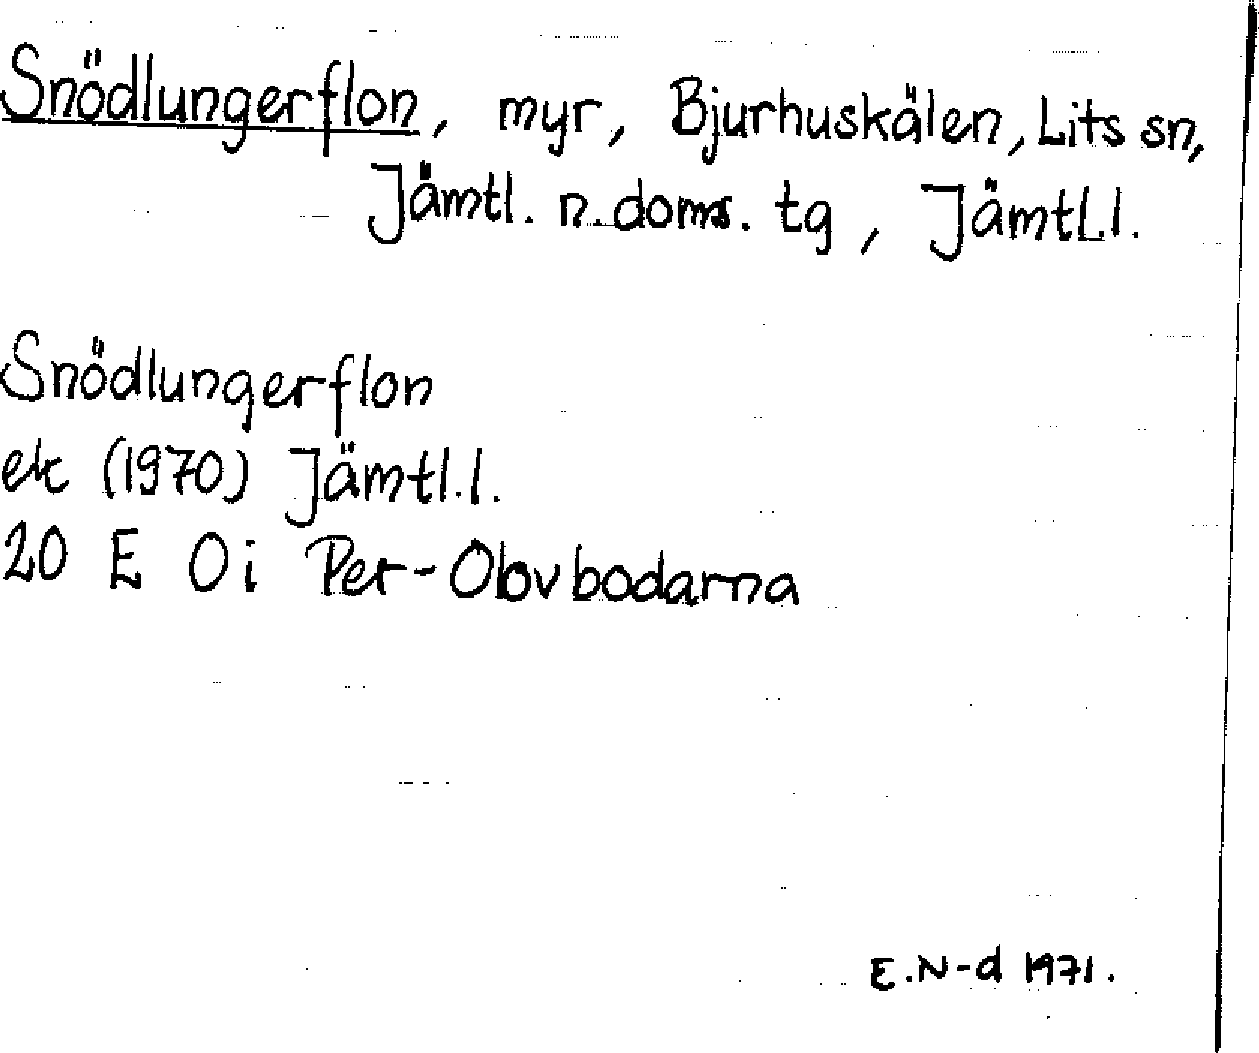 Snödlungerflon, myr, Bjurhuskälen, Lits sn,
Jämtl. n. doms. tg, Jämtl.l.
Snödlungerflon
ek (1970) Jämtl.l.
20 E 0i Per-Olovbodarna
E.N-d 1971.